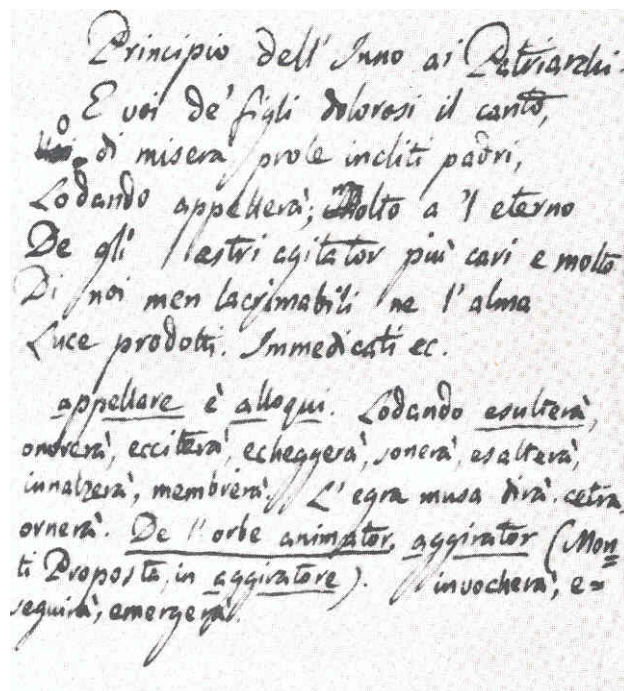 Principio dell'Inno ai Patriarchi.
E voi de' figli dolorosi il canto,
O di misera prole incliti padri,
Lodando appellerà; Molto a 'l eterno
De gli astri agitator più cari e molto
Di noi men lacrimabili ne l'alma
Luce prodotti. Immedicati ec.
appellare è alloqui. Lodando esulterà,
onorerà, ecciterà, echeggerà, sonerà, esalterà,
innalzerà, membrerà. L'egra musa dirà. cetra,
ornerà. De l'orbe animator, aggirator (Mon
ti Proposta, in aggiratore). invocherà, e=
seguirà, emergerà.